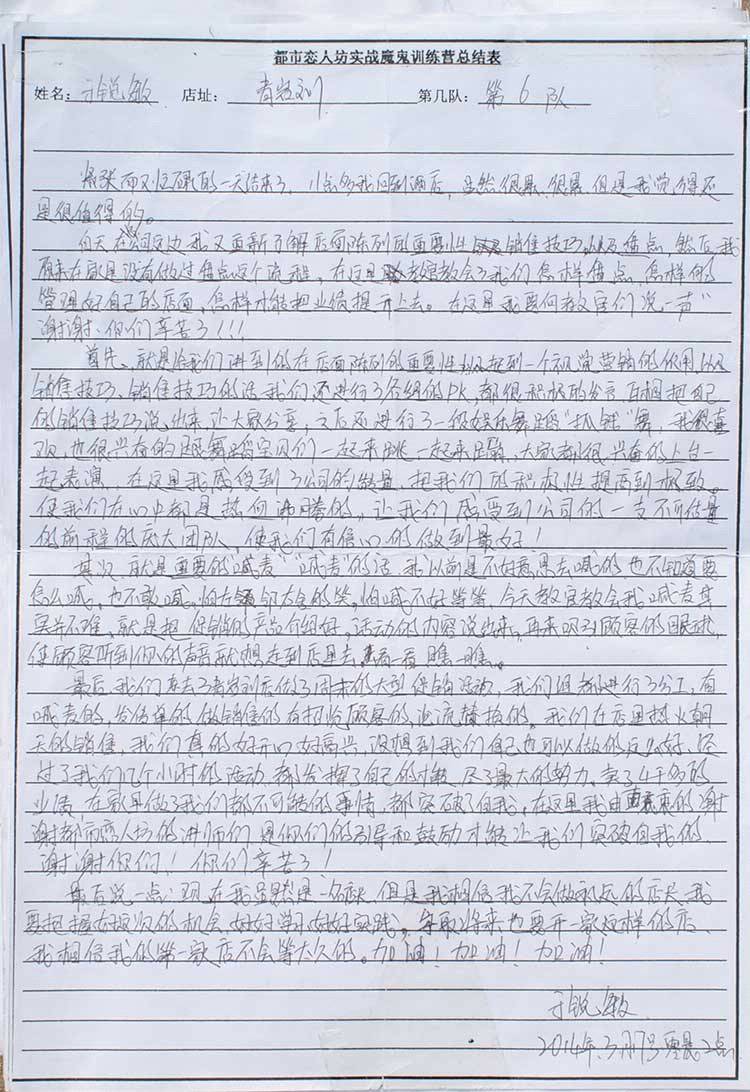 都市恋人坊实战魔鬼训练营总结表
姓名：于锐敏 店址： 第几队：第6队
紧张而又忙碌的一天结束了，11点多我回到酒店，虽然很累、很累但是我觉得还
是很值得的。
白天在公司这边我又重新了解店面陈列的重要性 销售技巧以及盘点，然后我
在这里 教会了我们怎样盘点，怎样的
管理好自己的店面，怎样才能把业绩提升上去。在这里我要向教官们说一声“
谢谢、你们辛苦了！！！
首先、就是给我们讲到的在店面陈列的重要性以及起到一个视觉营销的作用，以及
销售技巧、销售技巧的话我们还进行了各组的PK，都很积极的发言互相把自己
的销售技巧说出来，让大家分享，之后还进行了一级娱乐舞蹈“抓钱”舞，我很喜
欢，也很兴奋的跟舞蹈宝贝们一起来跳一起来蹈、大家都很兴奋的上台一
起表演，在这里我感受到了公司的能量，把我们的积极性提高到极致。
使我们在心中都是热血沸腾的，让我们感受到公司的一支不可估量
的前程的庞大团队，使我们有信心的做到最好！
其次，就是重要的喊麦“喊麦”的话，我以前是不好意思去喊的，也不知道要
怎么喊。也不敢喊，怕 的笑。怕喊不好等等，今天教官教会我喊麦其
实并不难，就是把促销的产品介绍好，活动的内容说出来，再来吸引顾客的眼球，
使顾客听到你的声音就想走到店里去，看一看瞧一瞧。
最后，我们 店做了周末的大型促销活动，我们组都进行了分工，有
喊麦的，发传单的，做销售的有招揽顾客的， 我们在店里热火朝
天的销售，我们真的好开心好高兴，没想到我们自己也可以做的这么好，经
过了我们几个小时的活动，都发挥了自己的 尽了最大的努力，卖了4千多的
业绩，在 做了我们都不可能的事情，都突破了自我。在这里我由衷的谢
谢都市恋人坊的讲师们，是你们的引导和鼓励才能让我们突破自我的，
谢谢你们！你们辛苦了！
最后说一点：现在我虽然是一名店长，但是我相信我不会做永远的店长，我
要把握好这次的机会，好好学习好好实践。争取将来也要开一家这样的店，
我相信我的第一家店不会等太久的。加油！加油！加油！
于锐敏
2014年3月17号 凌晨2点